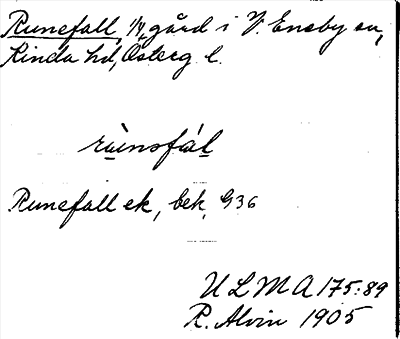 Runefall, 1/4, gård i V. Eneby sn,
Kinda hd, Österg l.
rùnsfál
Runefall ek, bek, G36
ULMA 175:89
R. Alvin 1905